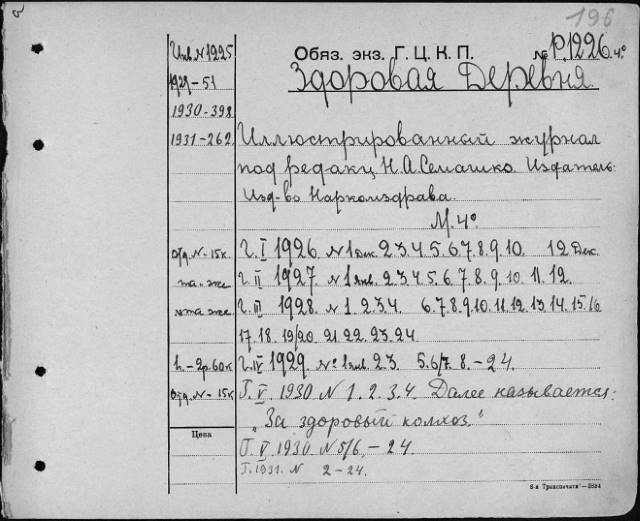 196
Обяз. экз. Г. Ц. К. П. № Р.1226 4°
Здоровая Деревня.
Инв. N 1225
1929-51
1930-398
1931-262
Иллюстрированный журнал
под редакц. Н. А. Семашко. Издатель:
Изд-во Наркомздрава.
М. 4°
Отд. N-15к. Г. I 1926 N 1 Дек. 2.3.4.5.6.7.8.9.10. 12 Дек.
та-же Г. II 1927 N 1 янв. 2.3.4.5.6.7.8.9.10.11.12.
та же Г. III 1928. N 1.2.3.4. 6.7.8.9.10.11.12.13.14.15.16
17.18.19/20 21.22.23.24
2р.60к Г. IV 1929. № 1 янв. 2.3. 5.6/7.8.-24.
Отд. N-15к Г. V. 1930 N 1.2.3.4. Далее называется:
„За здоровый колхоз."
Цена
Г. V. 1930. N 5/6.-24
Г. 1931. N 2-24.
8-я Транспечати—3884